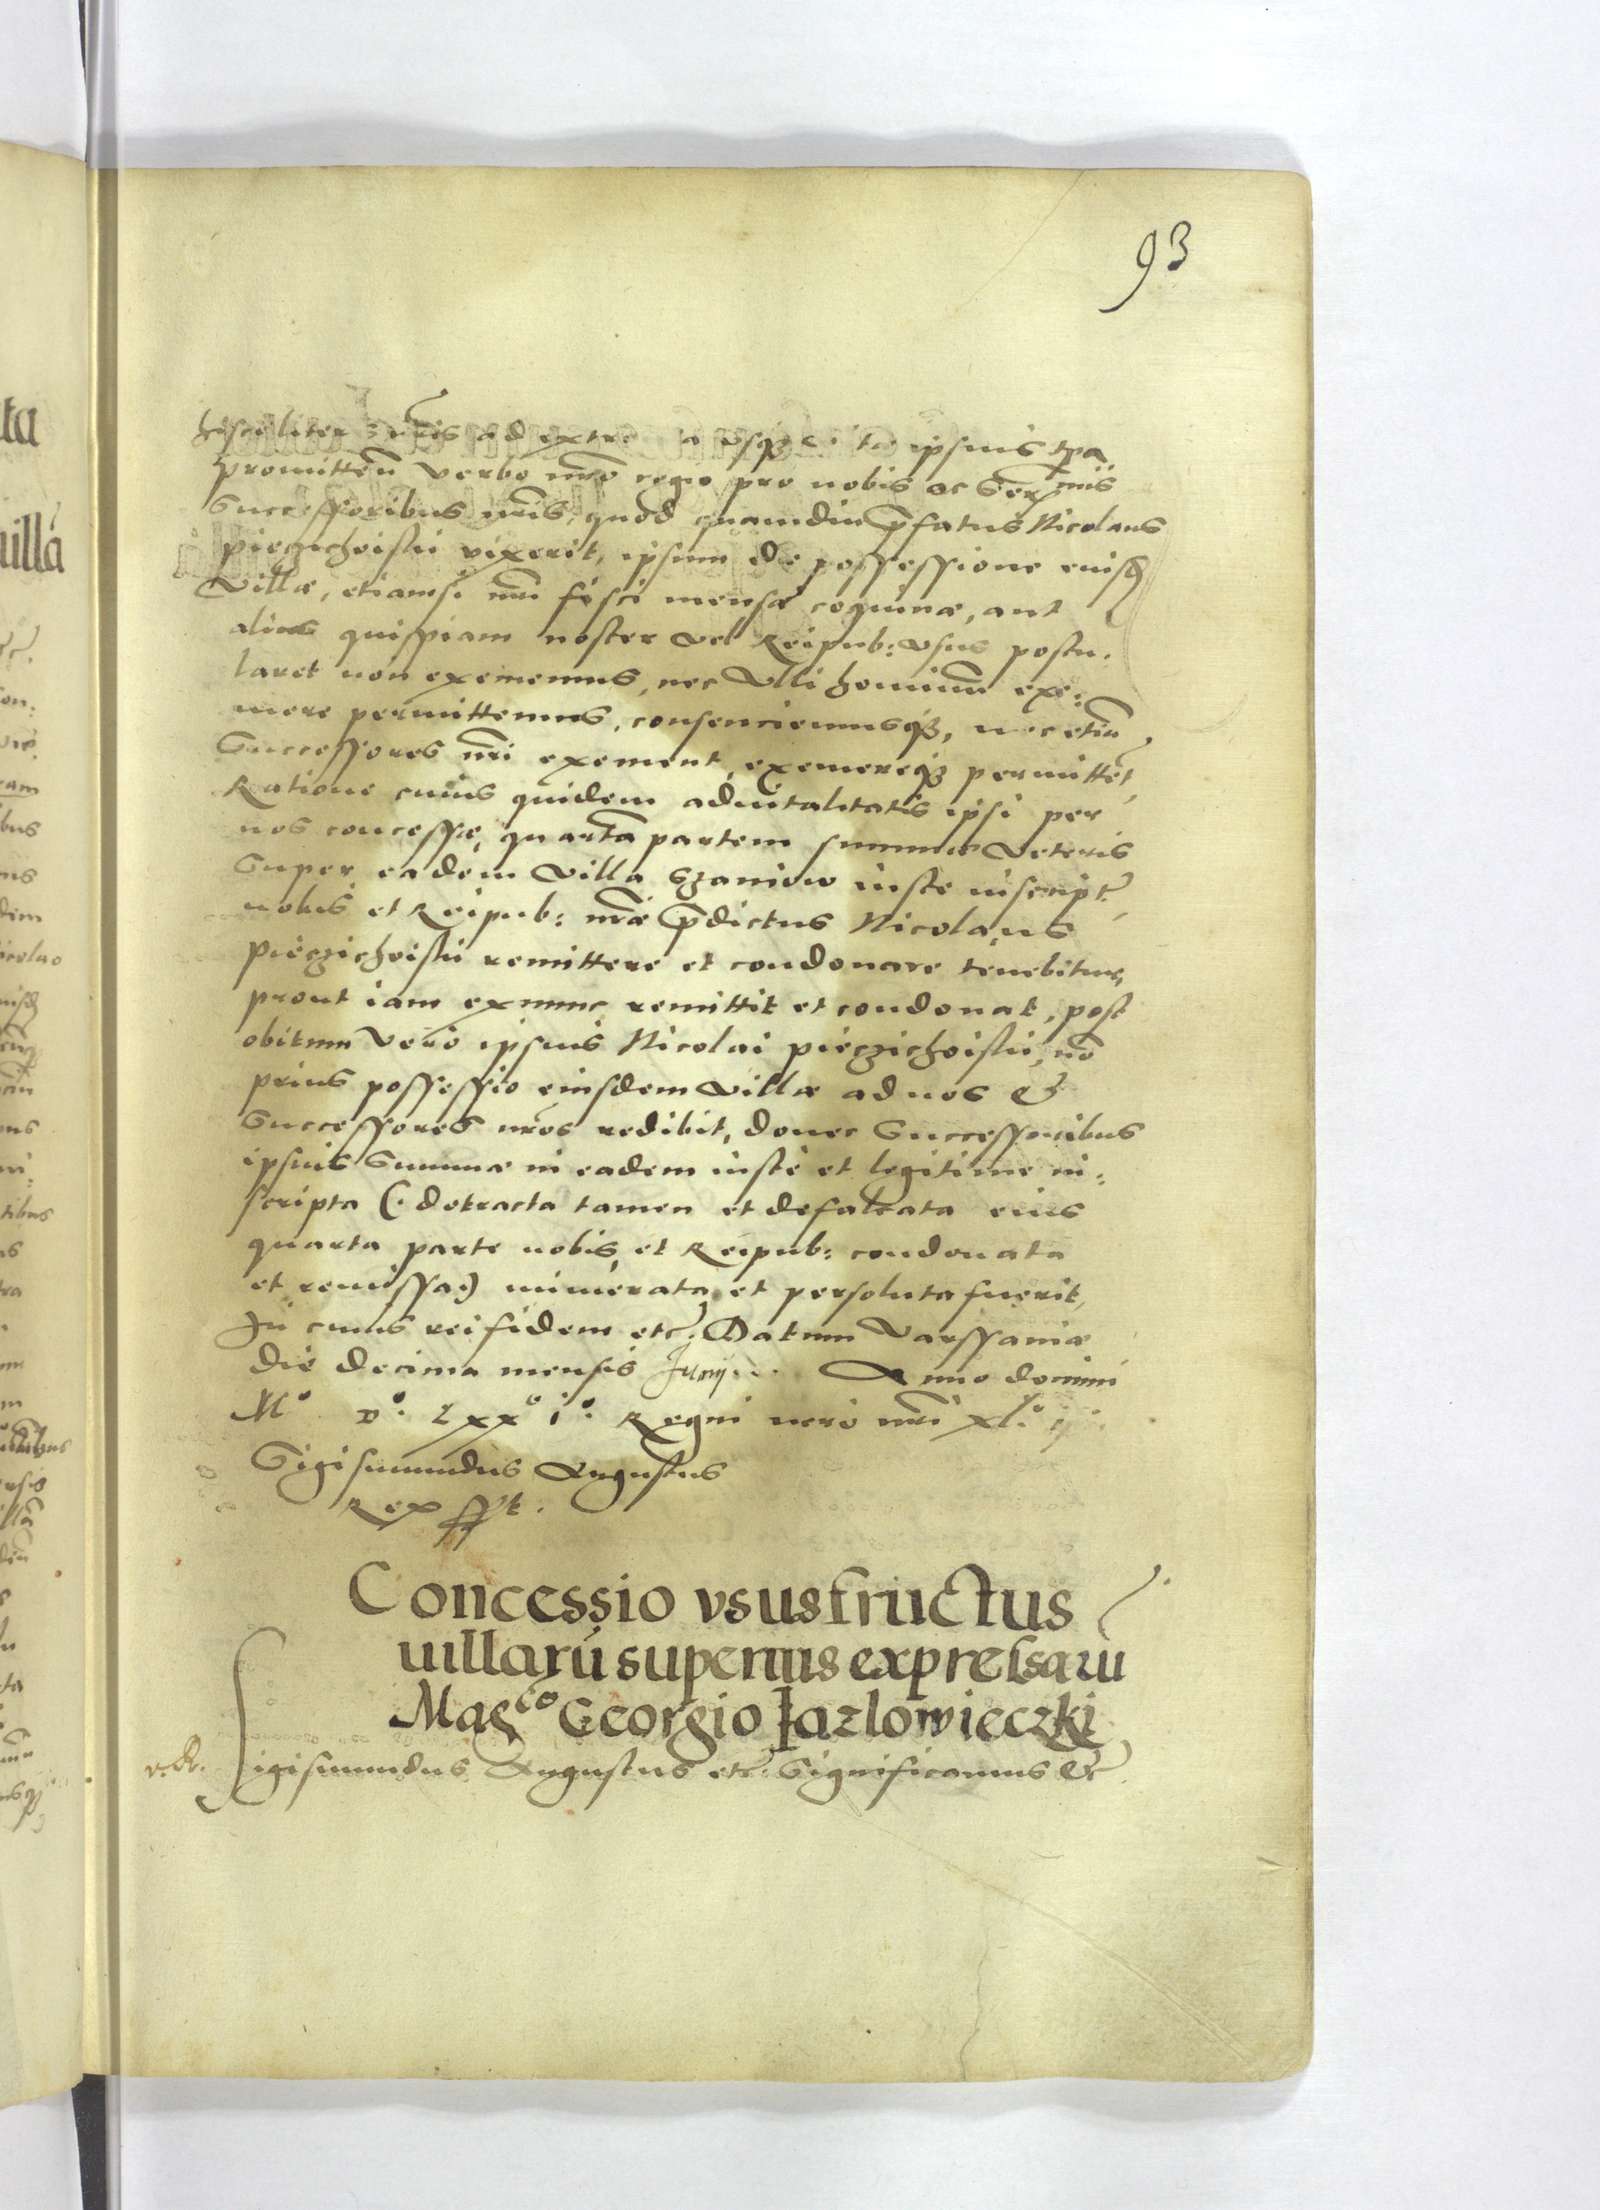 93
ad extre a usq; ipsius tpa
promitten̄ verbo nr̄o regio pro nobis ac Sermis
Successoribus nr̄is, quod quamdiu p̄fatus Nicolaus
pieczichoistii vixerit, ipsum de possessione euisd
villæ, etiamsi nr̄i fisci mensæ coquinæ, aut
alius quispiam noster vel Reipub: vsus postu.
laret non eximemus, nec vlli hominū exi:
mere permittemus, consenciemusq;, nec etiā
Successores nr̄i eximent, eximereq; permittēt,
Ratione cuius quidem aduitalitatis ipsi per
nos concessæ, quartā partem summæ veteris
super eadem villa Szaniow iuste inscriptæ
nobis et Reipub: nr̄æ p̄dictus Nicolaus
pieczichoistii remittere et condonare tenebitur,
prout iam exnunc remittit et condonat, post
obitum vero ipsius Nicolai pieczichoistii, nō
prius possessio eiusdem villæ ad nos &
Successores nr̄os redibit, donec Successoribus
ipsius Summa in eadem iuste et legitime in:
scripta (: detracta tamen et defalcata eius
quarta parte nobis et Reipub: condonata
et remissa:) numerata et persoluta fuerit,
In cuius rei fidem etc. Datum Varssauiæ
die decima mensis Junij Anno domini
Mº Dº. Lxxº iº. Regni vero nr̄i xl.º ij
Sigismundus Augustus
Rex sst.
Concessio vsusfructus
uillarū superius expressarū
Mag^co Georgio Jazlowieczki
Sigismundus Augustus etc. Significamus &c